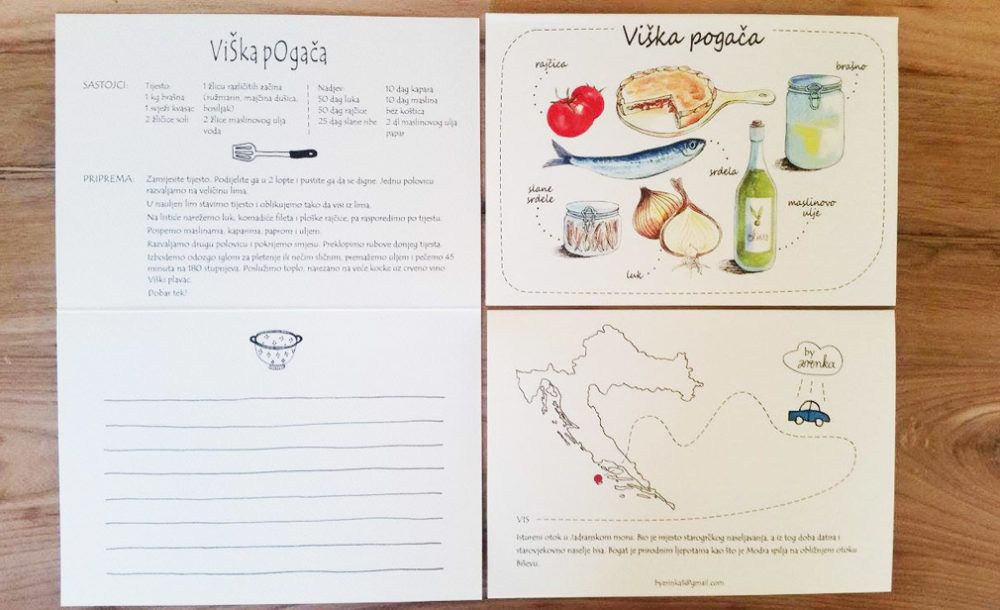 Viška pOgača
SASTOJCI:
Tijesto:
1 kg brašna
1 svježi kvasac
2 žličice soli
1 žlicu različitih začina
(ružmarin, majčina dušica,
bosiljak)
2 žlice maslinovog ulja
voda
Nadjev:
50 dag luka
50 dag rajčice
25 dag slane ribe
10 dag kapara
10 dag maslina
bez koštica
2 dl maslinovog ulja
papar
PRIPREMA:
Zamijesite tijesto. Podijelite ga u 2 lopte i pustite ga da se digne. Jednu polovicu
razvaljamo na veličinu lima.
U nauljen lim stavimo tijesto i oblikujemo tako da visi iz lima.
Na listiće narežemo luk, komadiće fileta i ploške rajčice, pa rasporedimo po tijestu.
Pospemo maslinama, kaparima, paprom i uljem.
Razvaljamo drugu polovicu i pokrijemo smjesu. Preklopimo rubove donjeg tijesta.
Izbodemo odozgo iglom za pletenje ili nečim sličnim, premažemo uljem i pečemo 45
minuta na 180 stupnjeva. Poslužimo toplo, narezano na veće kocke uz crveno vino
Viški plavac.
Dobar tek!
Viška pogača
rajčica
brašno
srdela
slane
srdele
maslinovo
ulje
luk
by
zrinka
VIS
Istureni otok u Jadranskom moru. Bio je mjesto starogrčkog naseljavanja, a iz tog doba datira i
starovjekovno naselje Issa. Bogat je prirodnim ljepotama kao što je Modra spilja na obližnjem otoku
Biševu.